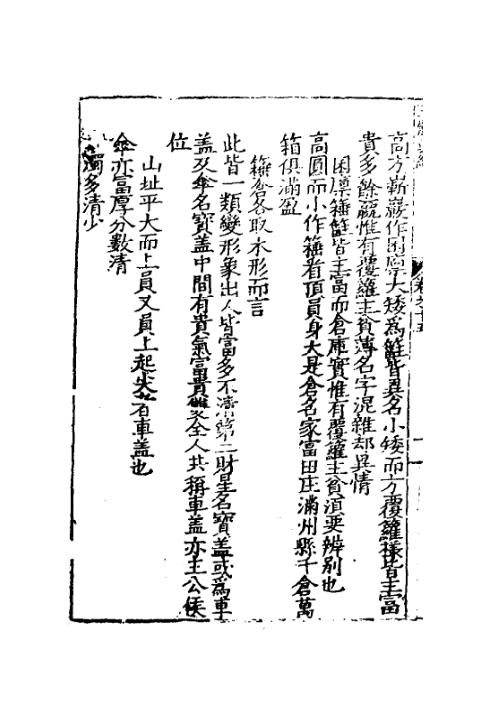 高方嶄巖作囷廩大矮為䑸皆異名小矮而方覆籮樣皆主富
貴多餘羸惟有覆籮主貧薄名字混雜却異情
囷廩籮䑸皆主富而倉庫實惟有覆籮主貧須要辨別也
高圓而小作籮者頂員身大是倉名家富田庄滿州縣千倉萬
箱俱滿盈
籮倉各取木形而言
此皆一類變形象出人皆富多不濟第二財星名寶盖或為車
盖及傘名寶盖中間有貴氣富貴雙全人共稱車盖亦主公侯
位
山址平大而上員又員上起尖者車盖也
傘亦富厚分數清
濁多清少